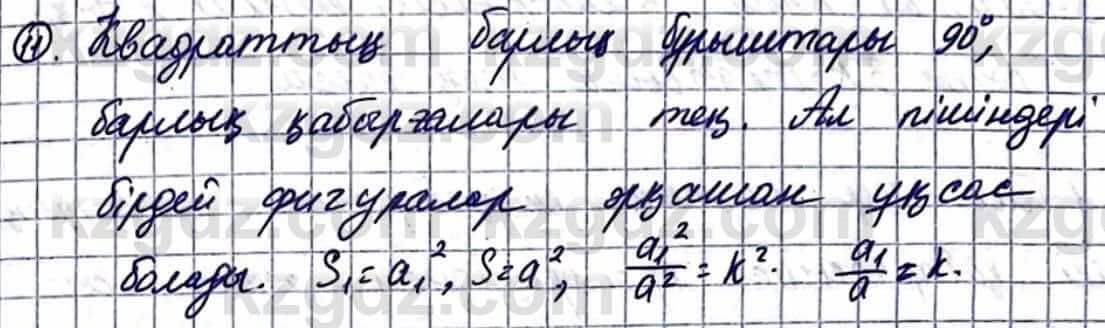 11. Квадраттың барлық бұрыштары 90°,
барлық қабырғалары тең. Ал пішіндері
бірдей фигуралар әрқашан ұқсас
болады. S₁=a₁², S=a², a₁²/a²=k². a₁/a=k.